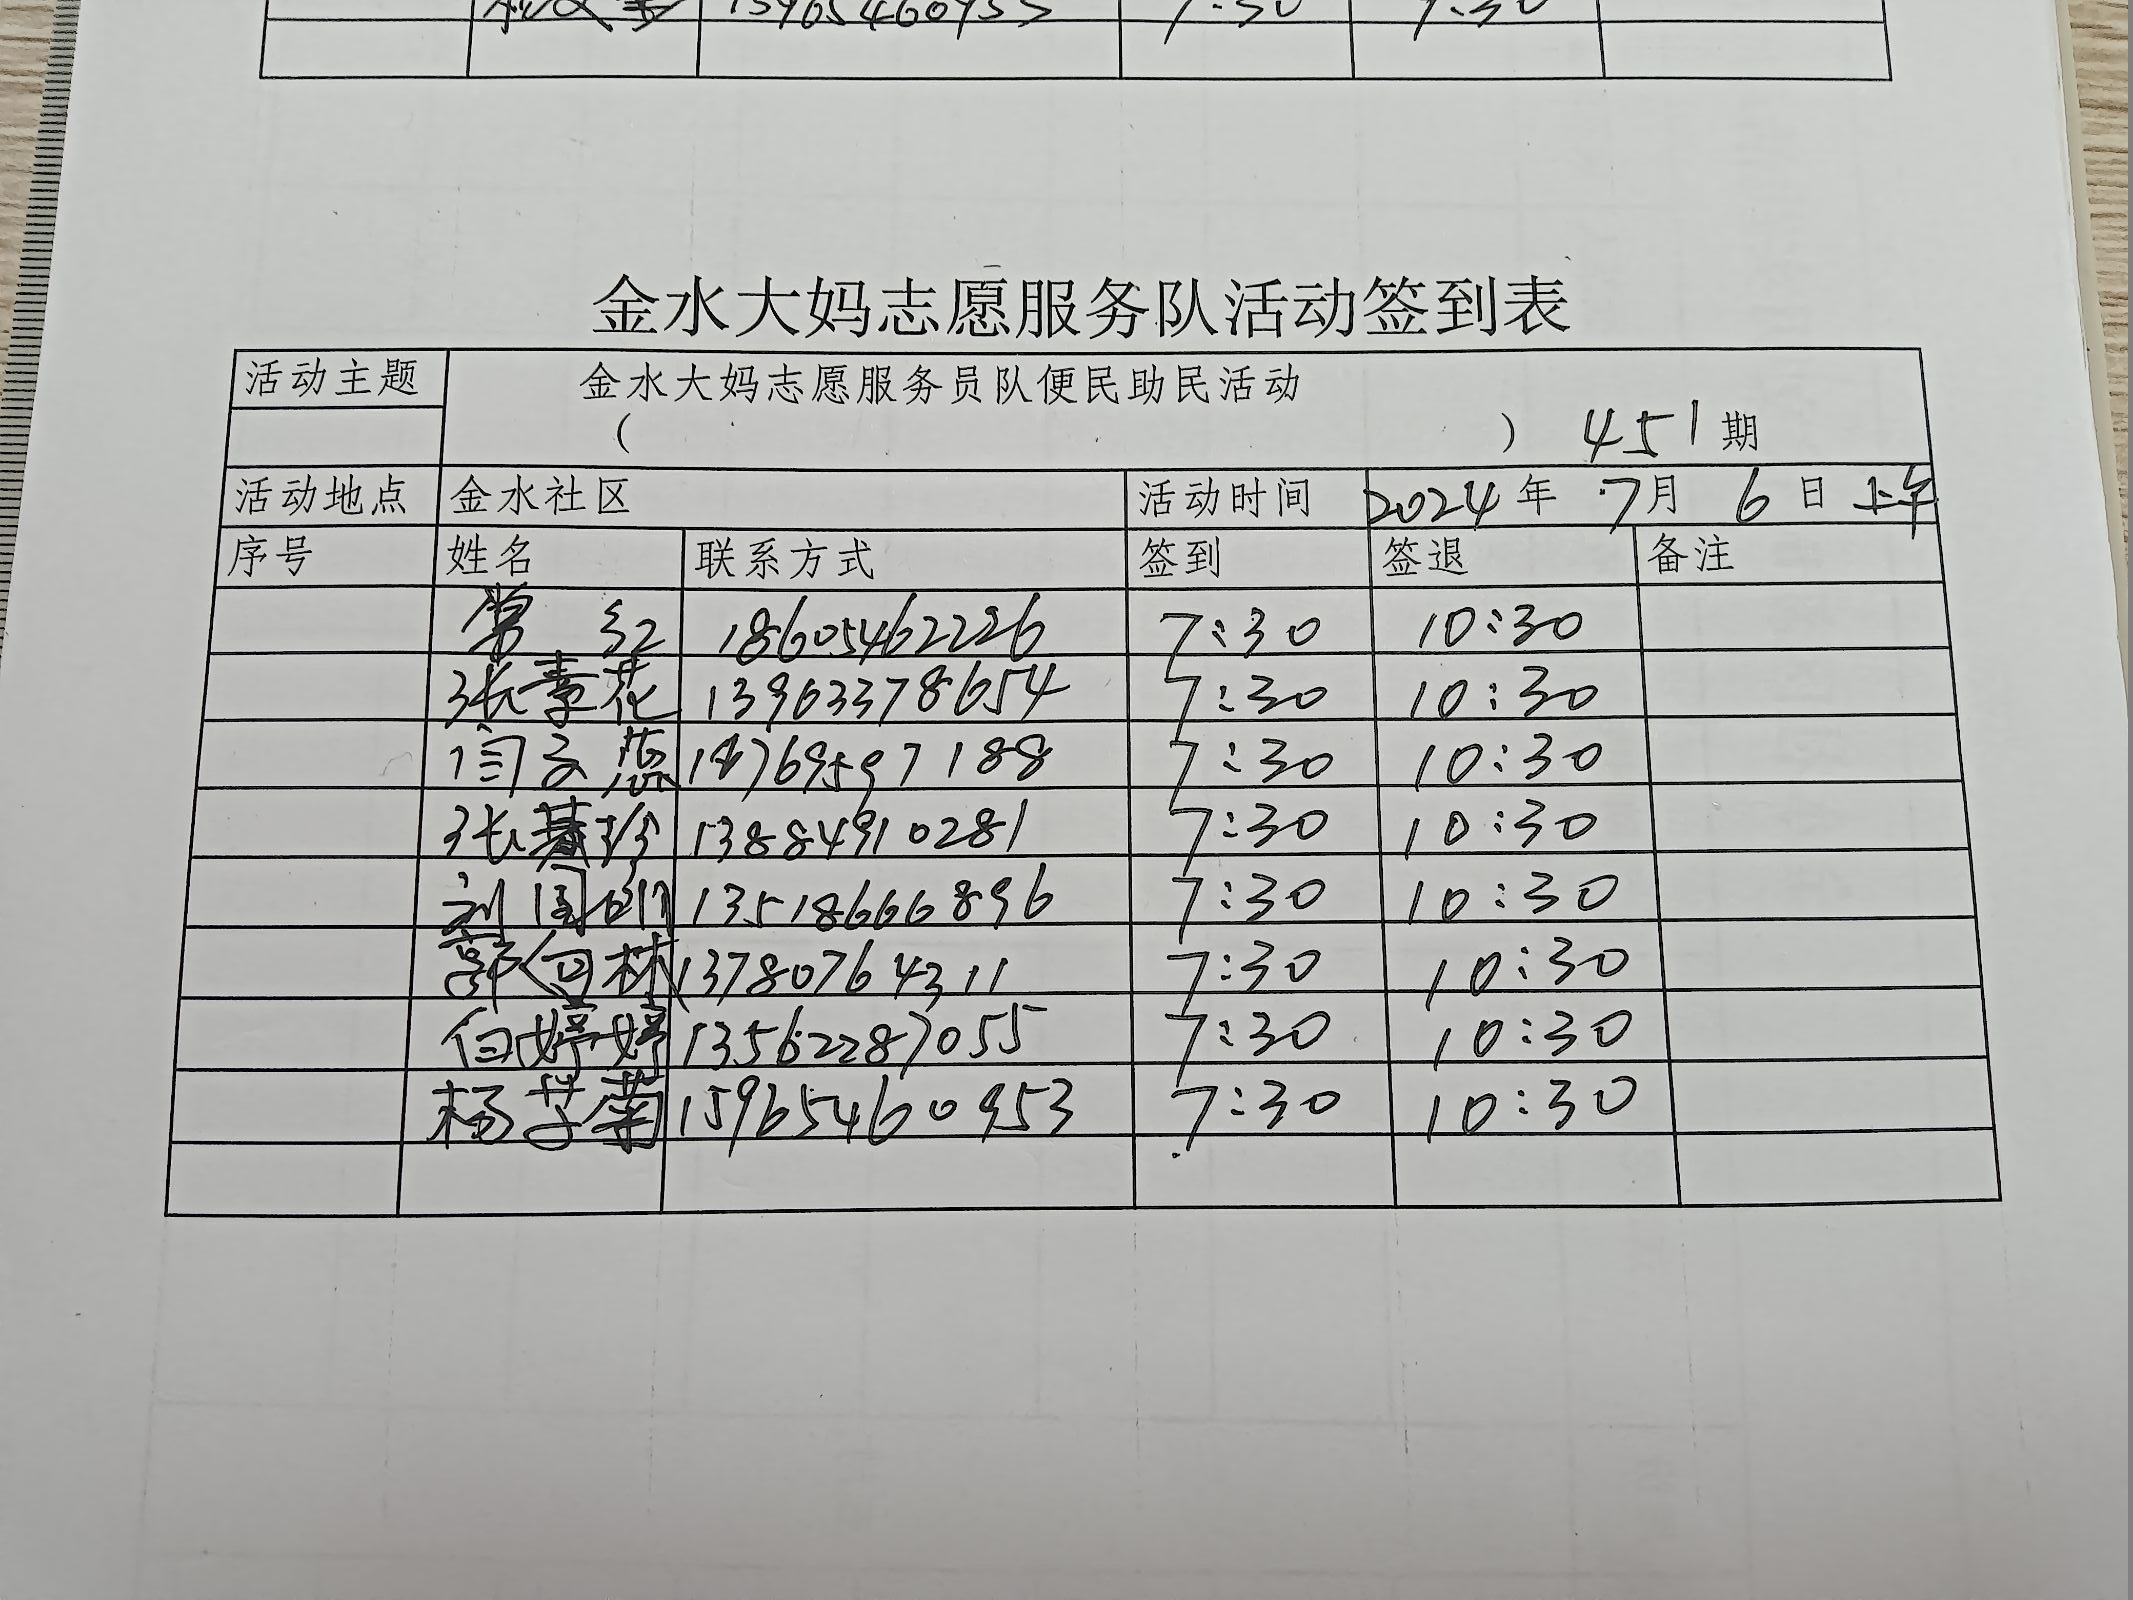 15965460953 7:30 9:30
金水大妈志愿服务队活动签到表
活动主题 金水大妈志愿服务员队便民助民活动
( ) 451期
活动地点 金水社区 活动时间 2024年7月6日上午
序号 姓名 联系方式 签到 签退 备注
常红 18605462226 7:30 10:30
张素花 13963378654 7:30 10:30
闫文蕊 18769597188 7:30 10:30
张慕珍 13884910281 7:30 10:30
刘国明 13518666896 7:30 10:30
郭向林 13780764311 7:30 10:30
白婷婷 13562287055 7:30 10:30
杨芝菊 15965460953 7:30 10:30